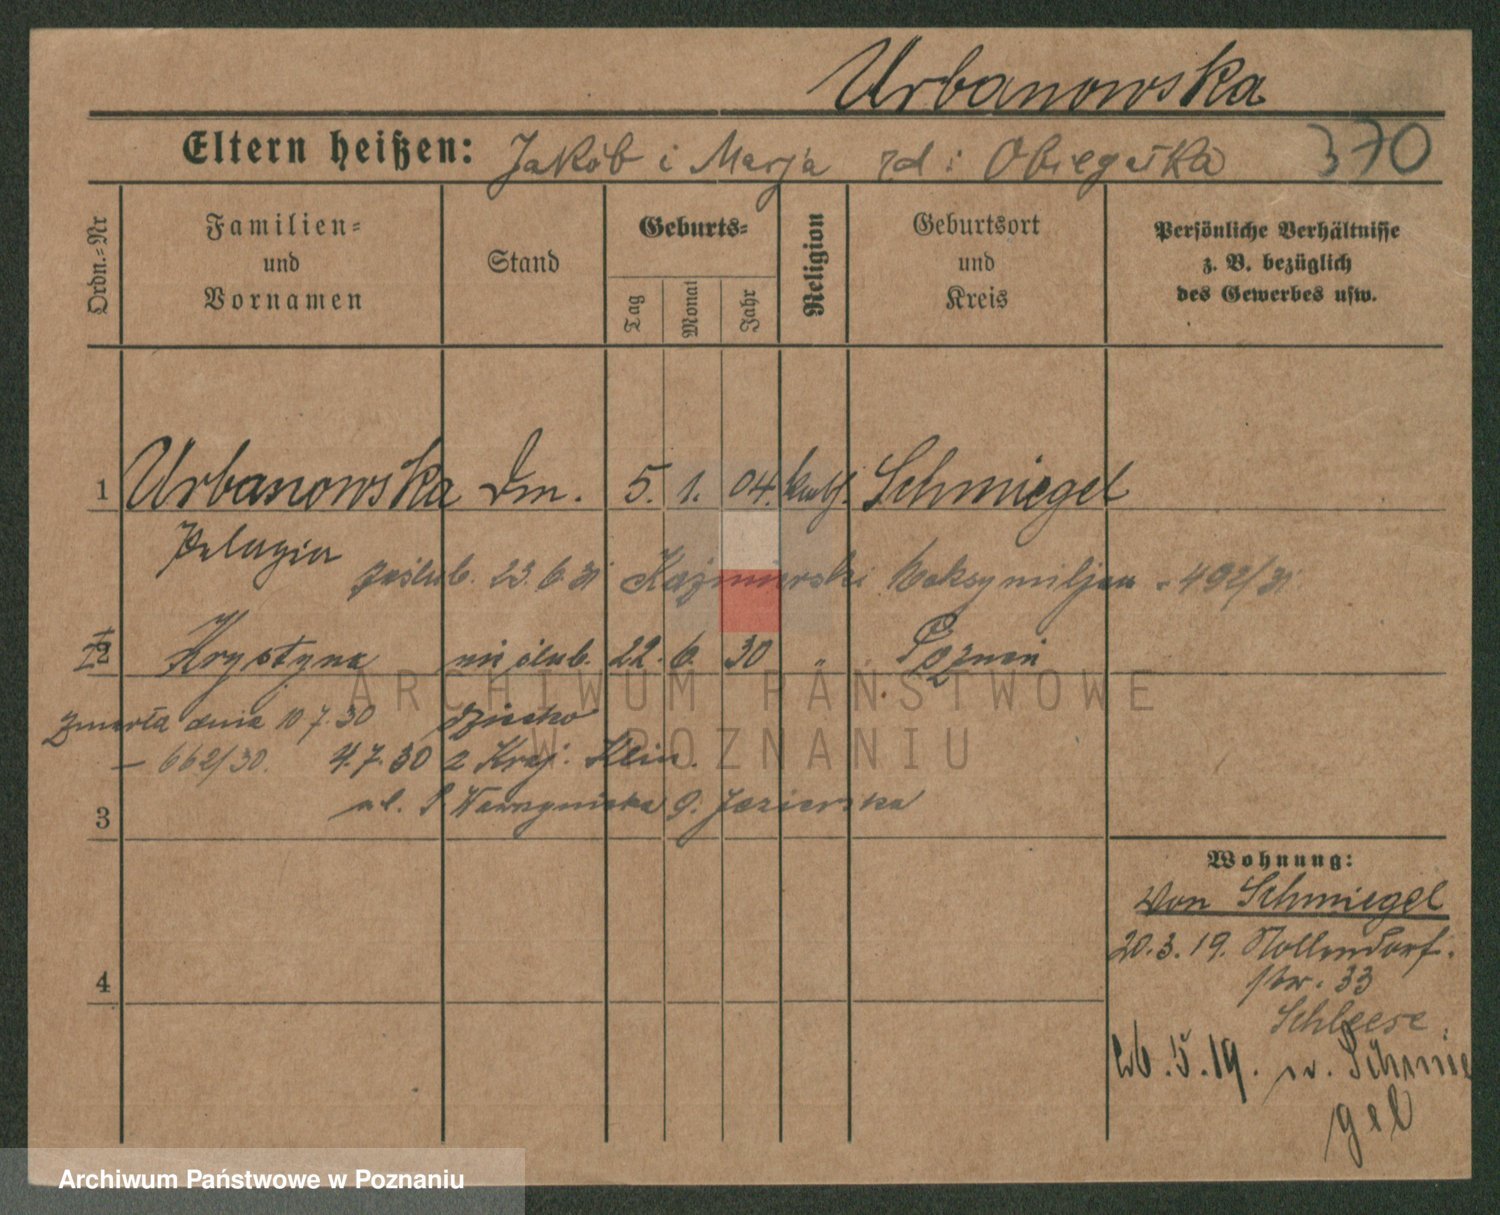 Urbanowska
Eltern heißen: Jakób i Marja zd: Obiegałka
370
Ordn.-Nr
Familien-
und
Vornamen
Stand
Geburts-
Tag
Monat
Jahr
Religion
Geburtsort
und
Kreis
Persönliche Verhältnisse
z. B. bezüglich
des Gewerbes usw.
1 Urbanowska Dm. 5. 1. 04. kath. Schmiegel
Pelagia
zaślub. 23.6.31 Kaźmierski Maksymiljan - 492/31
2 Krystyna nieślub. 22. 6. 30 " Poznań
zmarła dnia 10 7.30 dziecko
- 662/30. 4.7.30 z Kraj. Klin.
ul. 9. Jezierska
3
4
Wohnung:
Von Schmiegel
20.3.19. Nollendorf-
str. 33
Schleese
26.5.19. n. Schmie
gel
ARCHIWUM PAŃSTWOWE
W POZNANIU
Archiwum Państwowe w Poznaniu